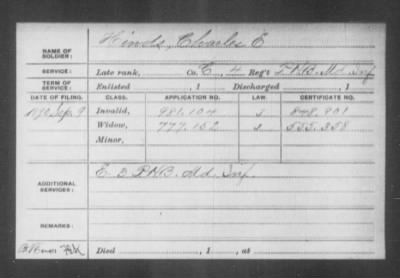 Hinds, Charles E
NAME OF SOLDIER:
SERVICE: Late rank, Co. E, 4 Reg't P.H.B. Md. Inf
TERM OF SERVICE: Enlisted , 1 Discharged , 1
DATE OF FILING. CLASS. APPLICATION NO. LAW. CERTIFICATE NO.
1890 Sep. 9 Invalid, 981.104 J 848.901
Widow, 777.152 555.358
Minor,
ADDITIONAL SERVICES: E 2 P.H.B. Md. Inf.
REMARKS:
Died , 1 , at